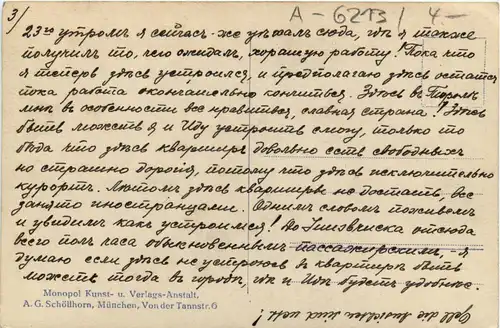 3/
A-6213/ 4.-
23го утромъ я сейчасъ-же уѣхалъ сюда, гдѣ я также
получилъ то, чего ожидалъ, хорошую работу! Пока что
я теперь здѣсь устроился, и предполагаю здѣсь остаться
пока работа окончательно кончится. Здѣсь въ
мнѣ въ особенности все нравиться, славная страна! Здѣсь
быть можетъ я и Иду устроить смогу, только то
бѣда что здѣсь квартиръ довольно есть свободныхъ
но страшно дорогія, потому что здѣсь исключительно
курортъ. Лѣтомъ здѣсь квартиры не достать, все
занято иностранцами. Однимъ словомъ поживемъ
и увидимъ какъ устроимся! До Инсбрукка отсюда
всего полъ часа обыкновеннымъ пассажирскимъ, - я
думаю если здѣсь не устроюсь въ квартирѣ быть
можетъ тогда въ городѣ, гдѣ и Идѣ будетъ удобнѣе.
Monopol Kunst- u. Verlags-Anstalt,
A. G. Schöllhorn, München, Von der Tannstr. 6
die Ansichten sind